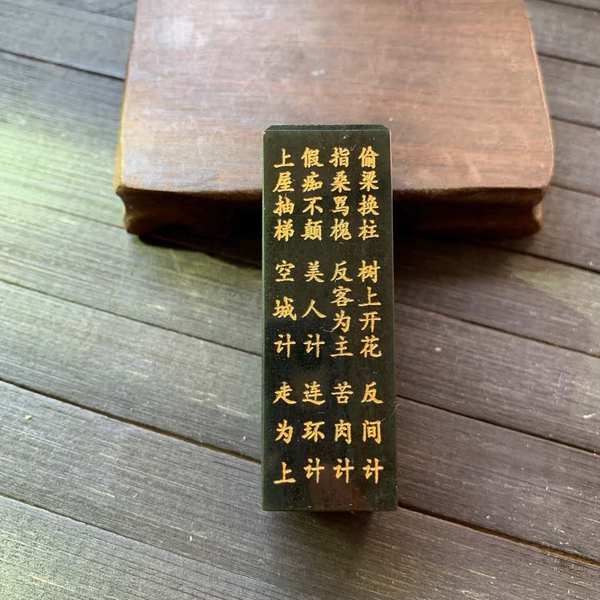 偷梁换柱
指桑骂槐
假痴不颠
上屋抽梯
树上开花
反客为主
美人计
空城计
反间计
苦肉计
连环计
走为上